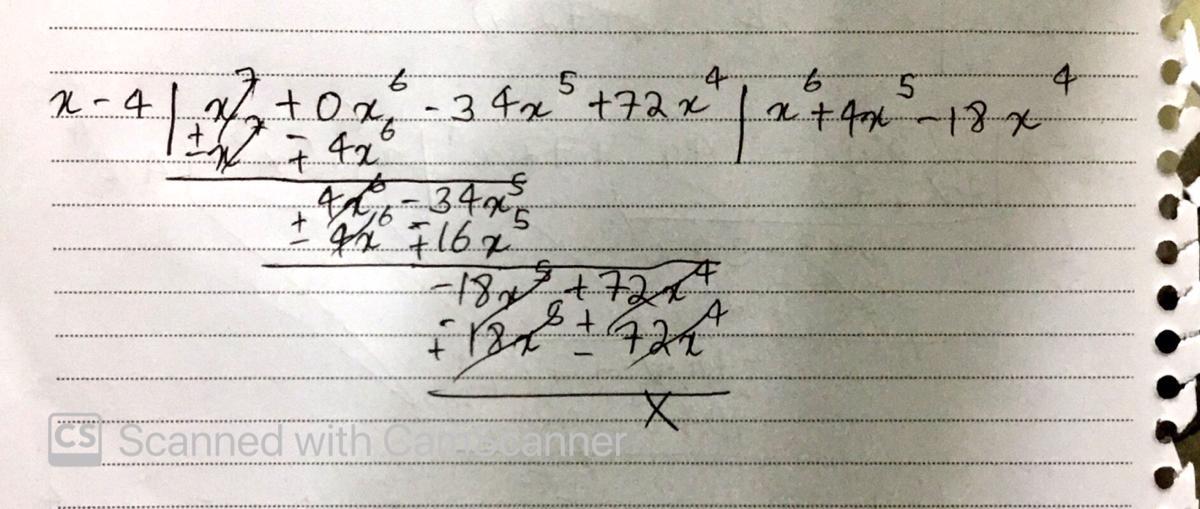 x - 4 | x⁷ + 0x⁶ - 34x⁵ + 72x⁴ | x⁶ + 4x⁵ - 18x⁴
± x⁷ ∓ 4x⁶
4x⁶ - 34x⁵
± 4x⁶ ∓ 16x⁵
-18x⁵ + 72x⁴
∓ 18x⁵ ± 72x⁴
X
CS Scanned with CamScanner